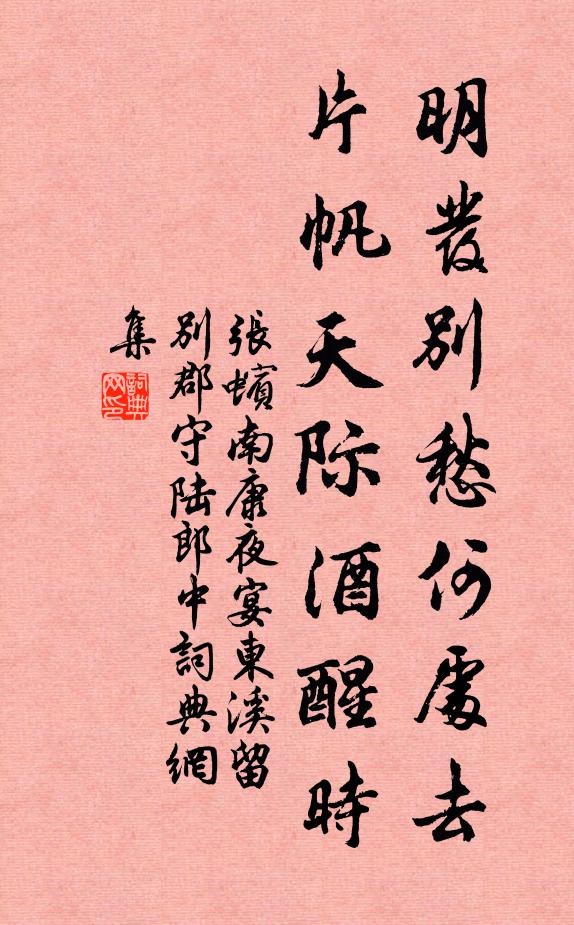 明發別愁何處去
片帆天际酒醒時
張蠙南康夜宴東溪留
別郡守陆郎中詞典網
集
詞典
网印